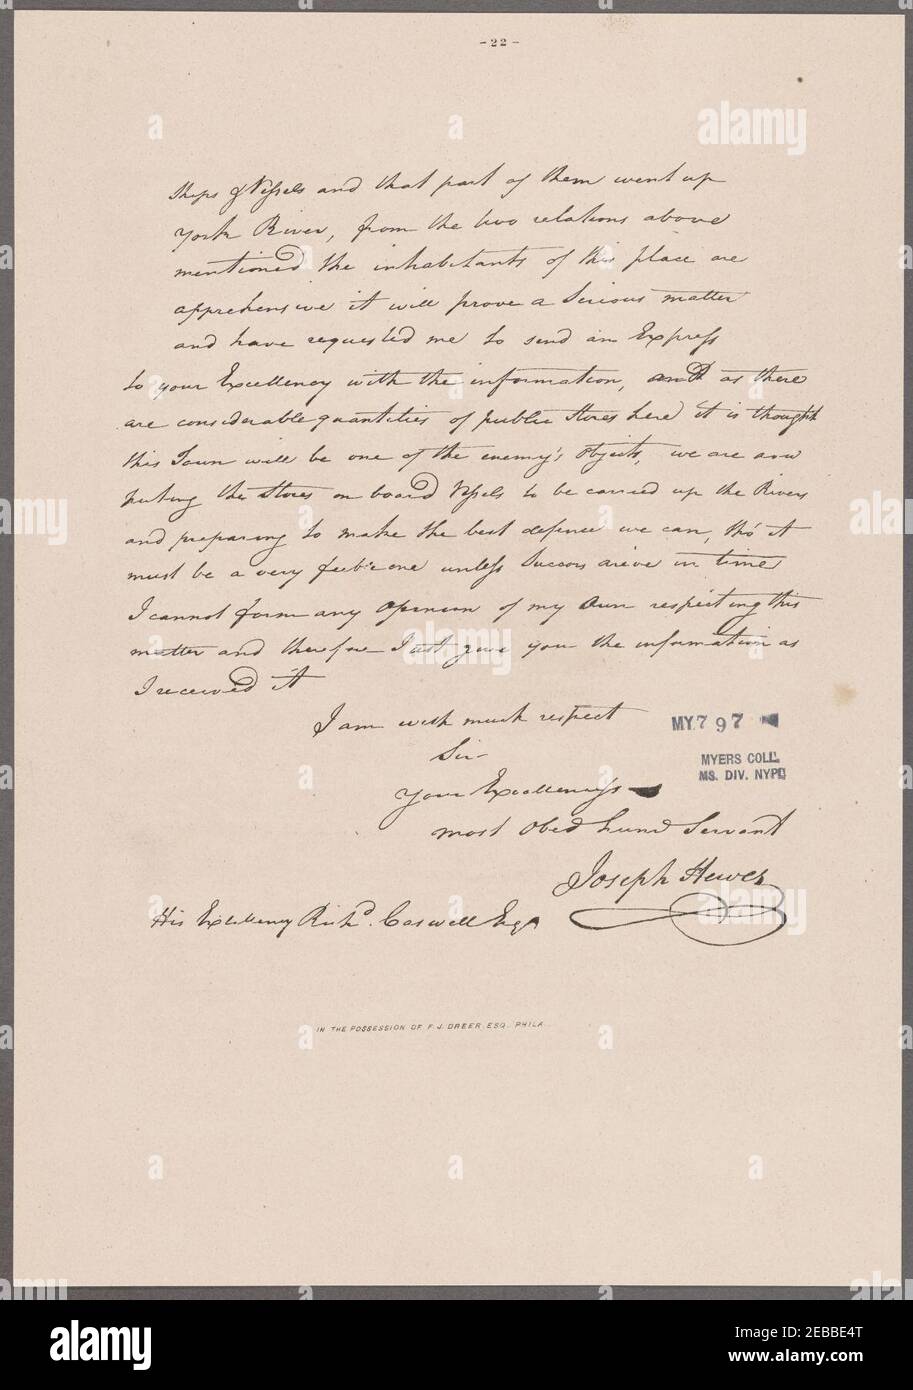 -22-
Ships & Vessels and that part of them went up
York River, from the two relations above
mentioned the inhabitants of this place are
apprehensive it will prove a Serious matter
and have requested me to send an Express
to your Excellency with the information, and as there
are considerable quantities of public Stores here it is thought
this Town will be one of the enemy's objects, we are now
puting the Stores on board Vessels to be carried up the Rivers
and preparing to make the best defence we can, tho' it
must be a very feeble one unless Succors arive in time
I cannot form any Opinion of my Own respecting this
matter and therefore Just give you the information as
I received it
I am with much respect
Sir
Your Excellencys
most Obed hum Servant
Joseph Hewes
His Excellency Richd. Caswell Esqr
MY 797
MYERS COLL.
MS. DIV. NYPL
IN THE POSSESSION OF F. J. DREER, ESQ. PHILA.
alamy
a
alamy
Image ID: 2EBBE4T
www.alamy.com